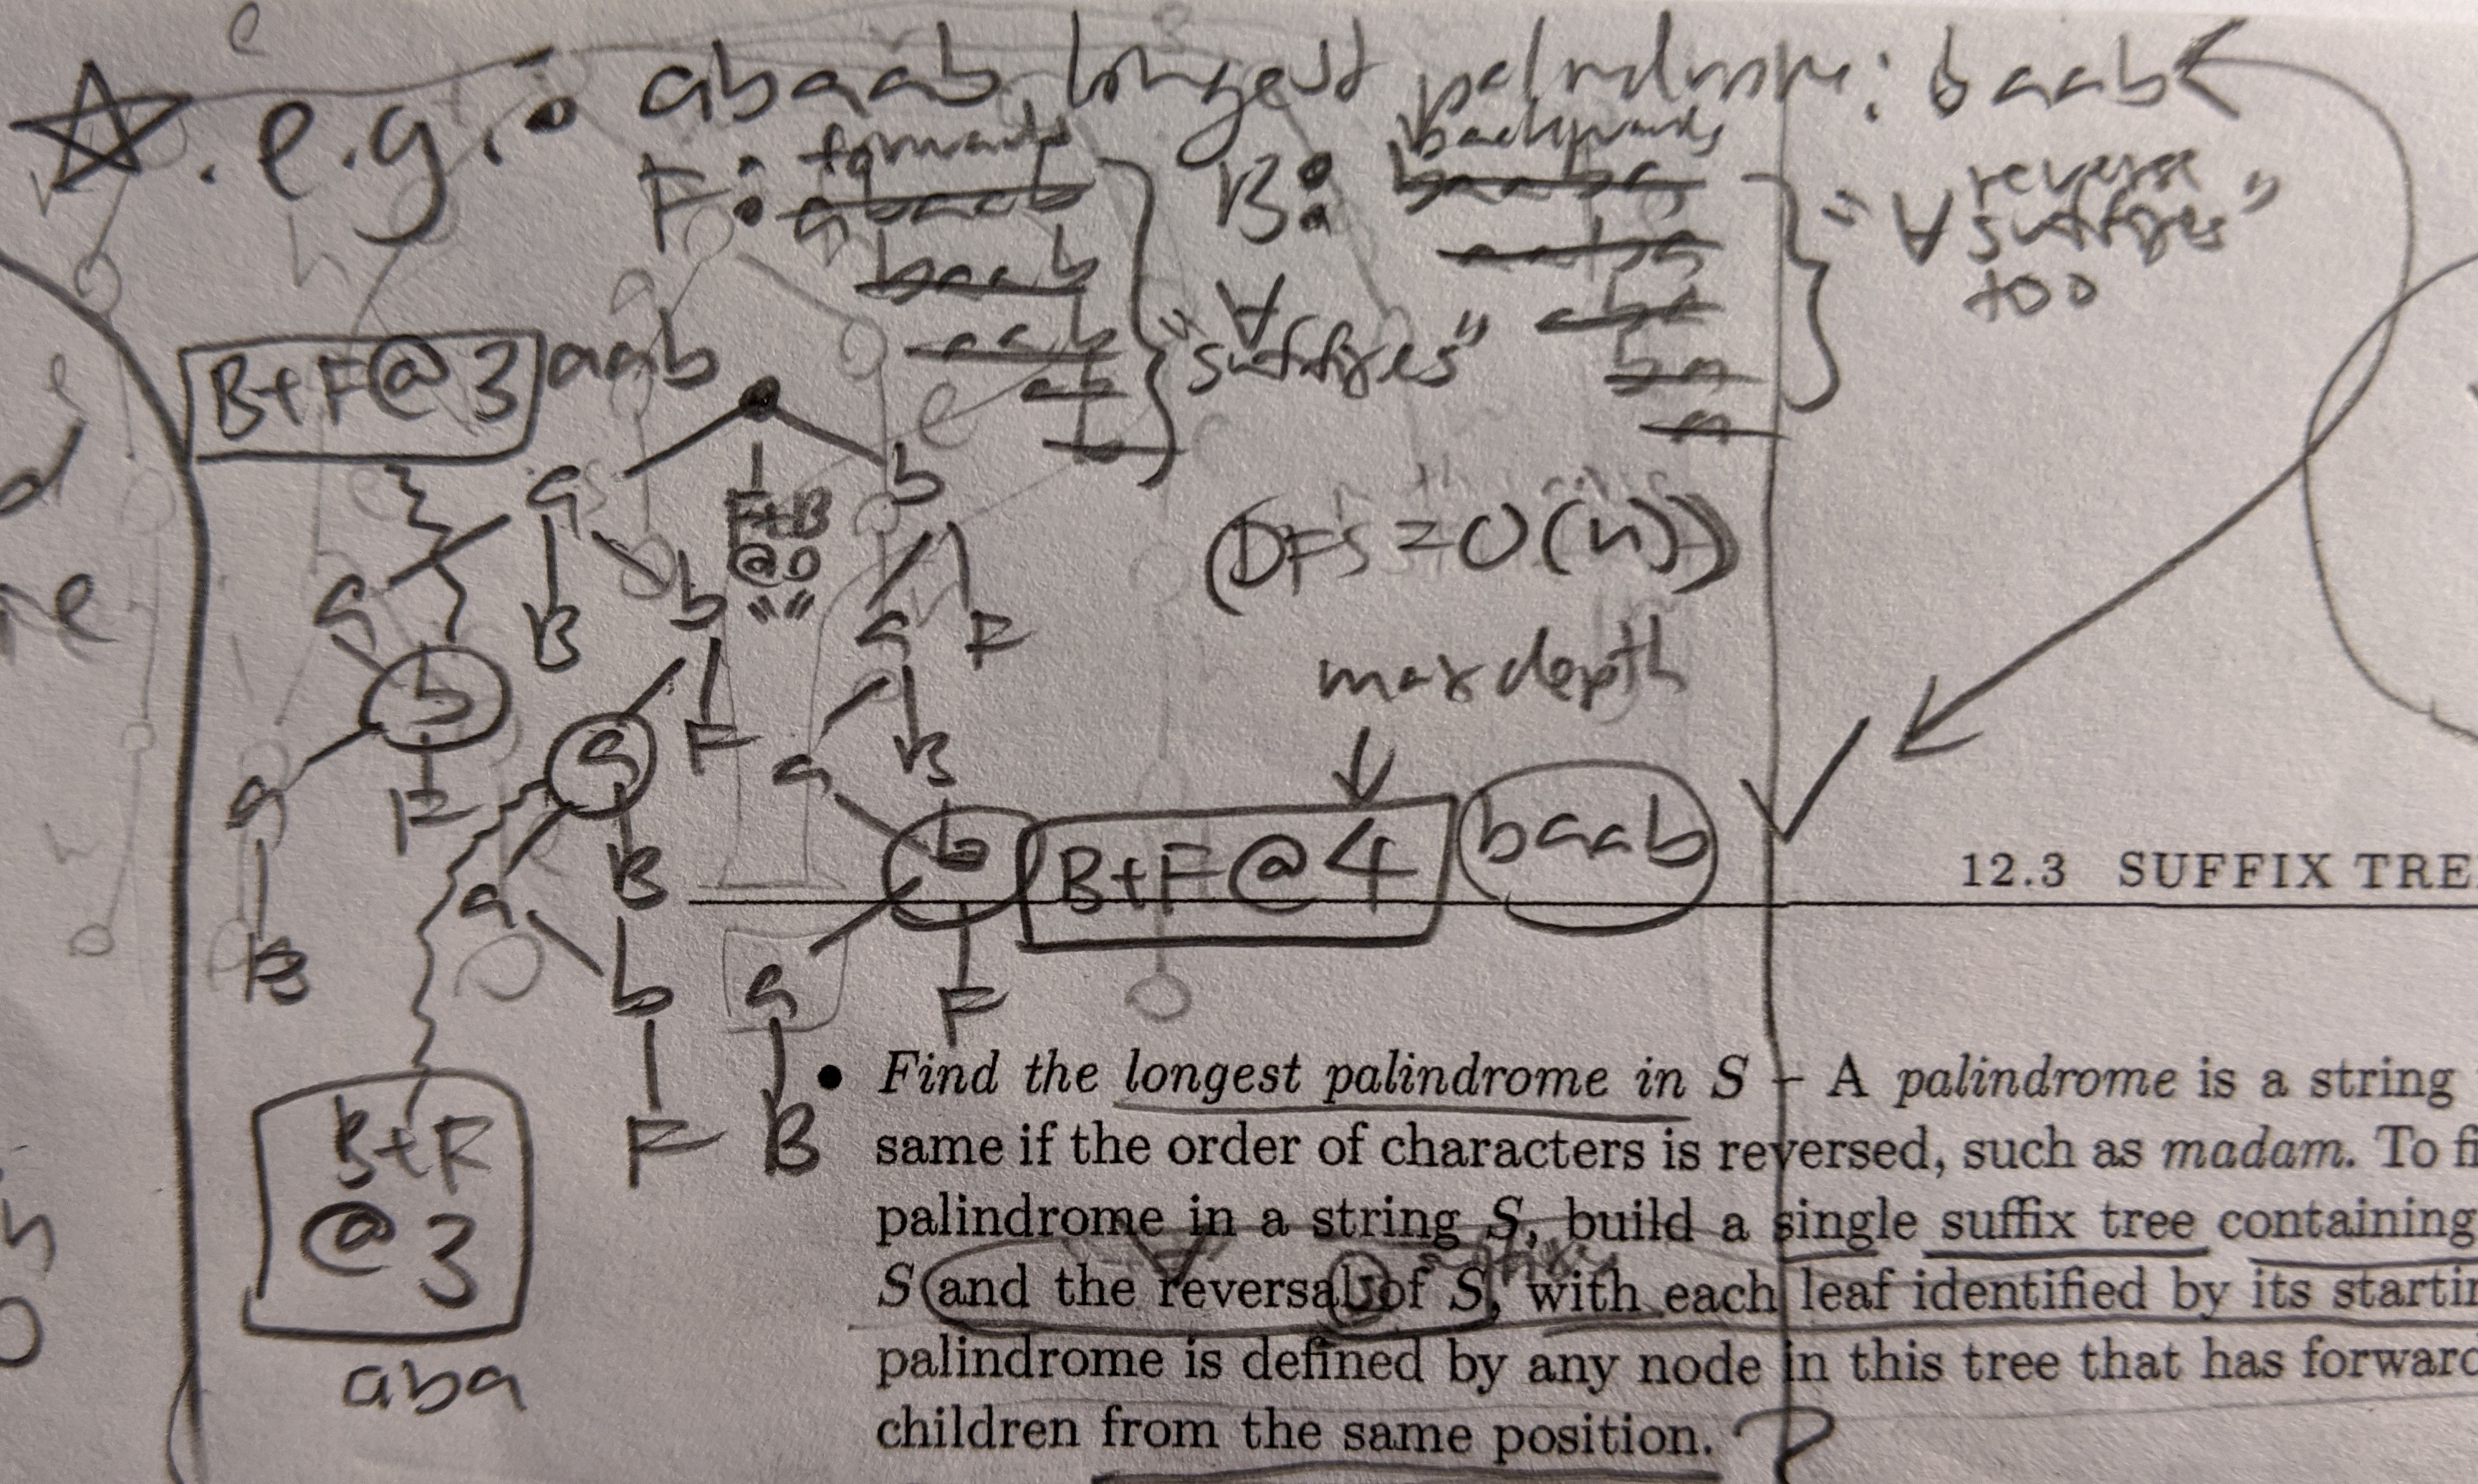 e.g.: abaab longest palindrome: baab
F: forwards
B: backwards
abaab
baaba
baab
aaba
aab
aba
ab
ba
b
a
"∀ suffixes"
"∀ reverse suffixes" too
B+F@3 aab
a
F+B @0 ""
b
(DFS = O(n))
a
B
b
a
F
max depth
b
a
F
a
B
a
F
B
b
B+F@4
baab
B
a
b
a
F
F
B
B+F @3
aba
12.3 SUFFIX TRE
• Find the longest palindrome in S – A palindrome is a string
same if the order of characters is reversed, such as madam. To fi
palindrome in a string S, build a single suffix tree containing
S and the reversal of S, with each leaf identified by its startin
palindrome is defined by any node in this tree that has forward
children from the same position. ?